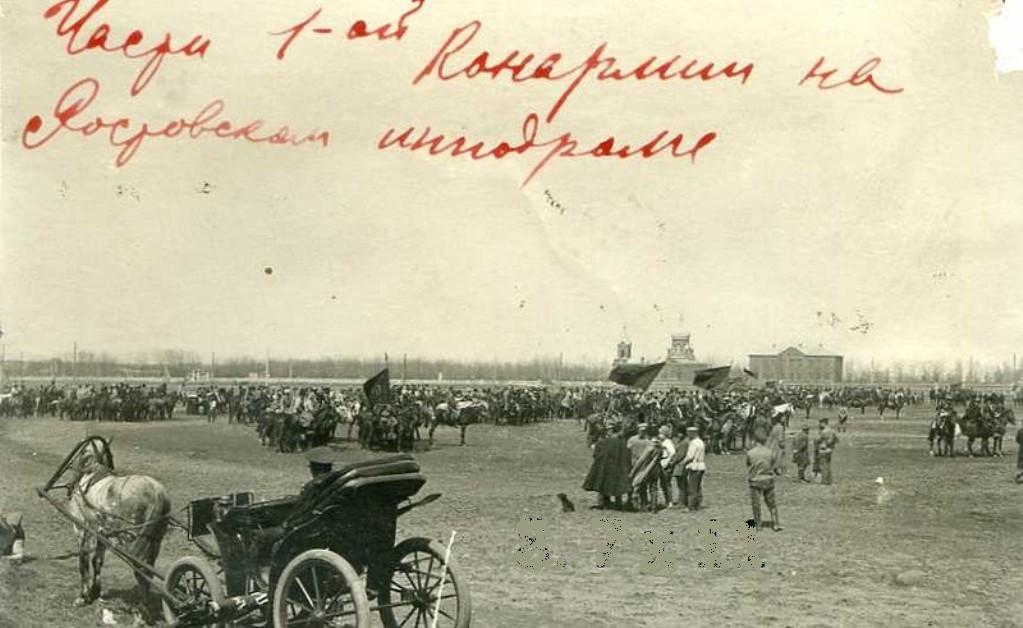 Части 1-ой Конармии на
Ростовском ипподроме
8.7х11